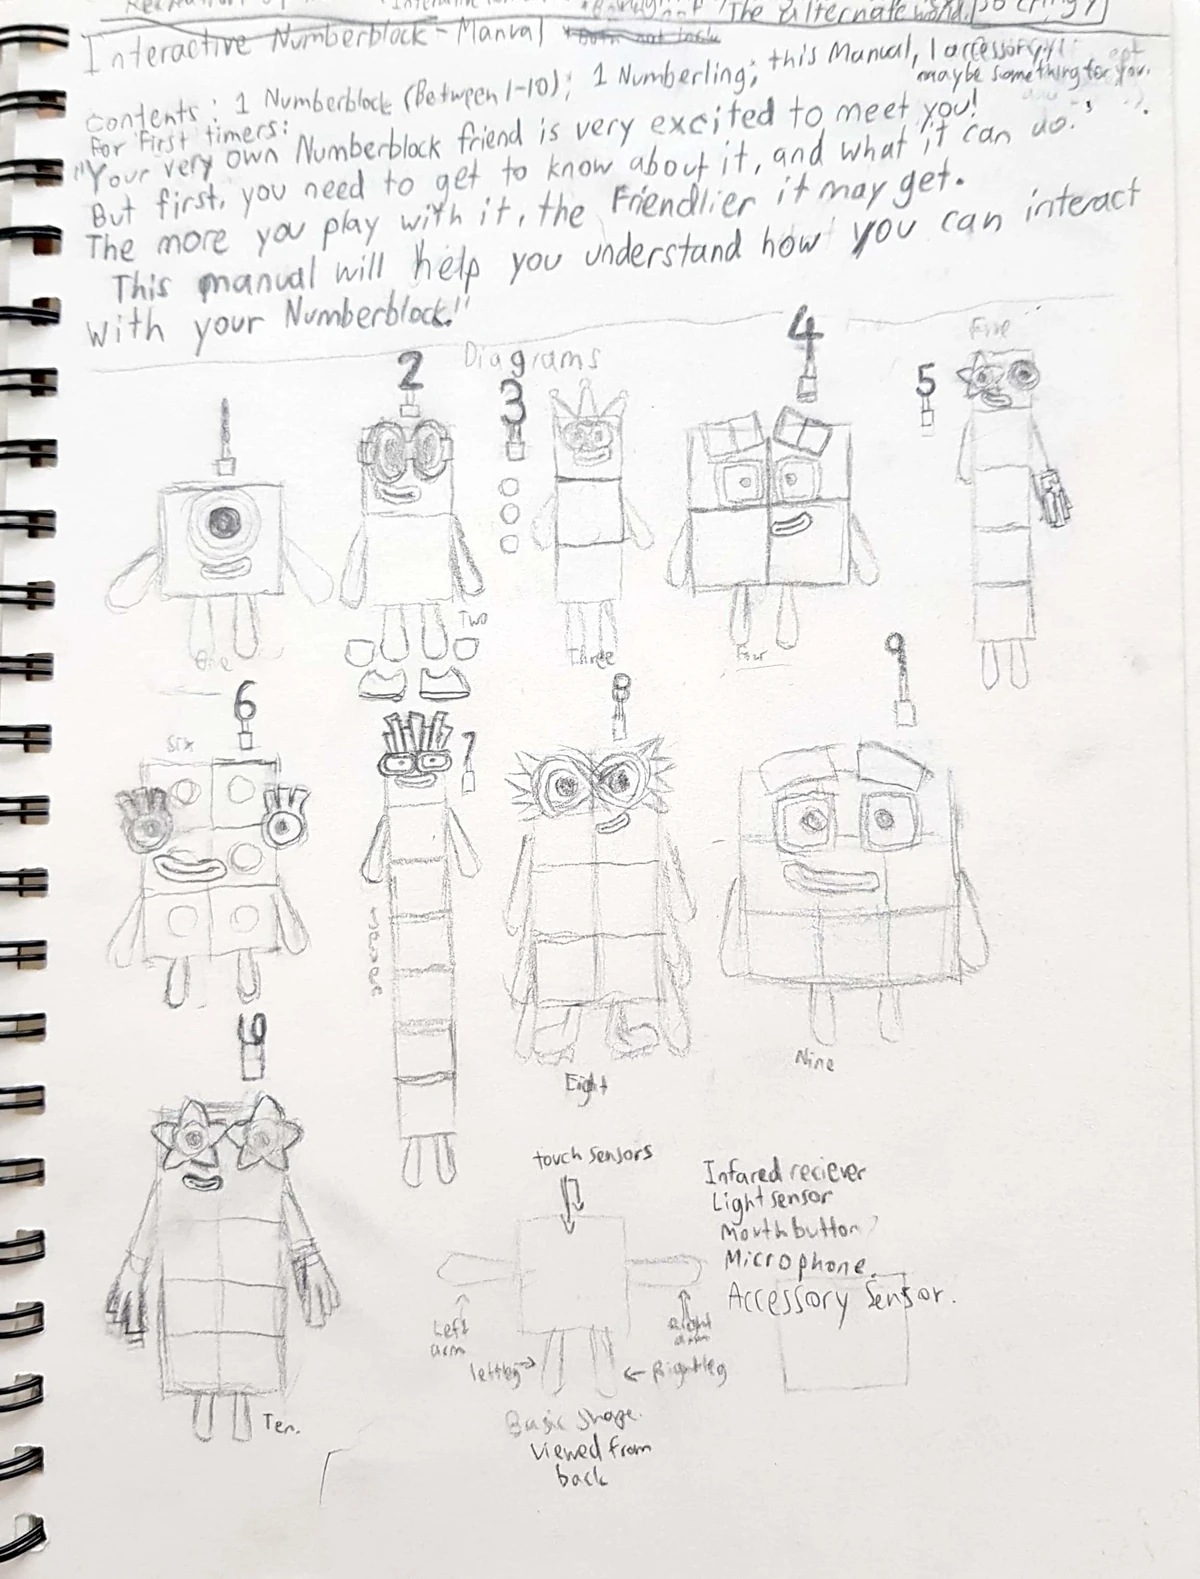 "The alternate world.
Interactive Numberblock - Manual
Contents: 1 Numberblock (Between 1-10); 1 Numberling; this Manual, 1 accessory
maybe something for you.
For First timers:
"Your very own Numberblock friend is very excited to meet you!
But first, you need to get to know about it, and what it can do.
The more you play with it, the Friendlier it may get.
This manual will help you understand how you can interact
with your Numberblock!"
Diagrams
1
2
3
4
Five
5
One
Two
Three
Four
Six
6
7
8
9
Seven
Eight
Nine
Ten.
touch sensors
Left arm
Right arm
left leg
Right leg
Basic Shape.
Viewed from
back
Infared reciever
Light sensor
Mouth button
Microphone.
Accessory Sensor.